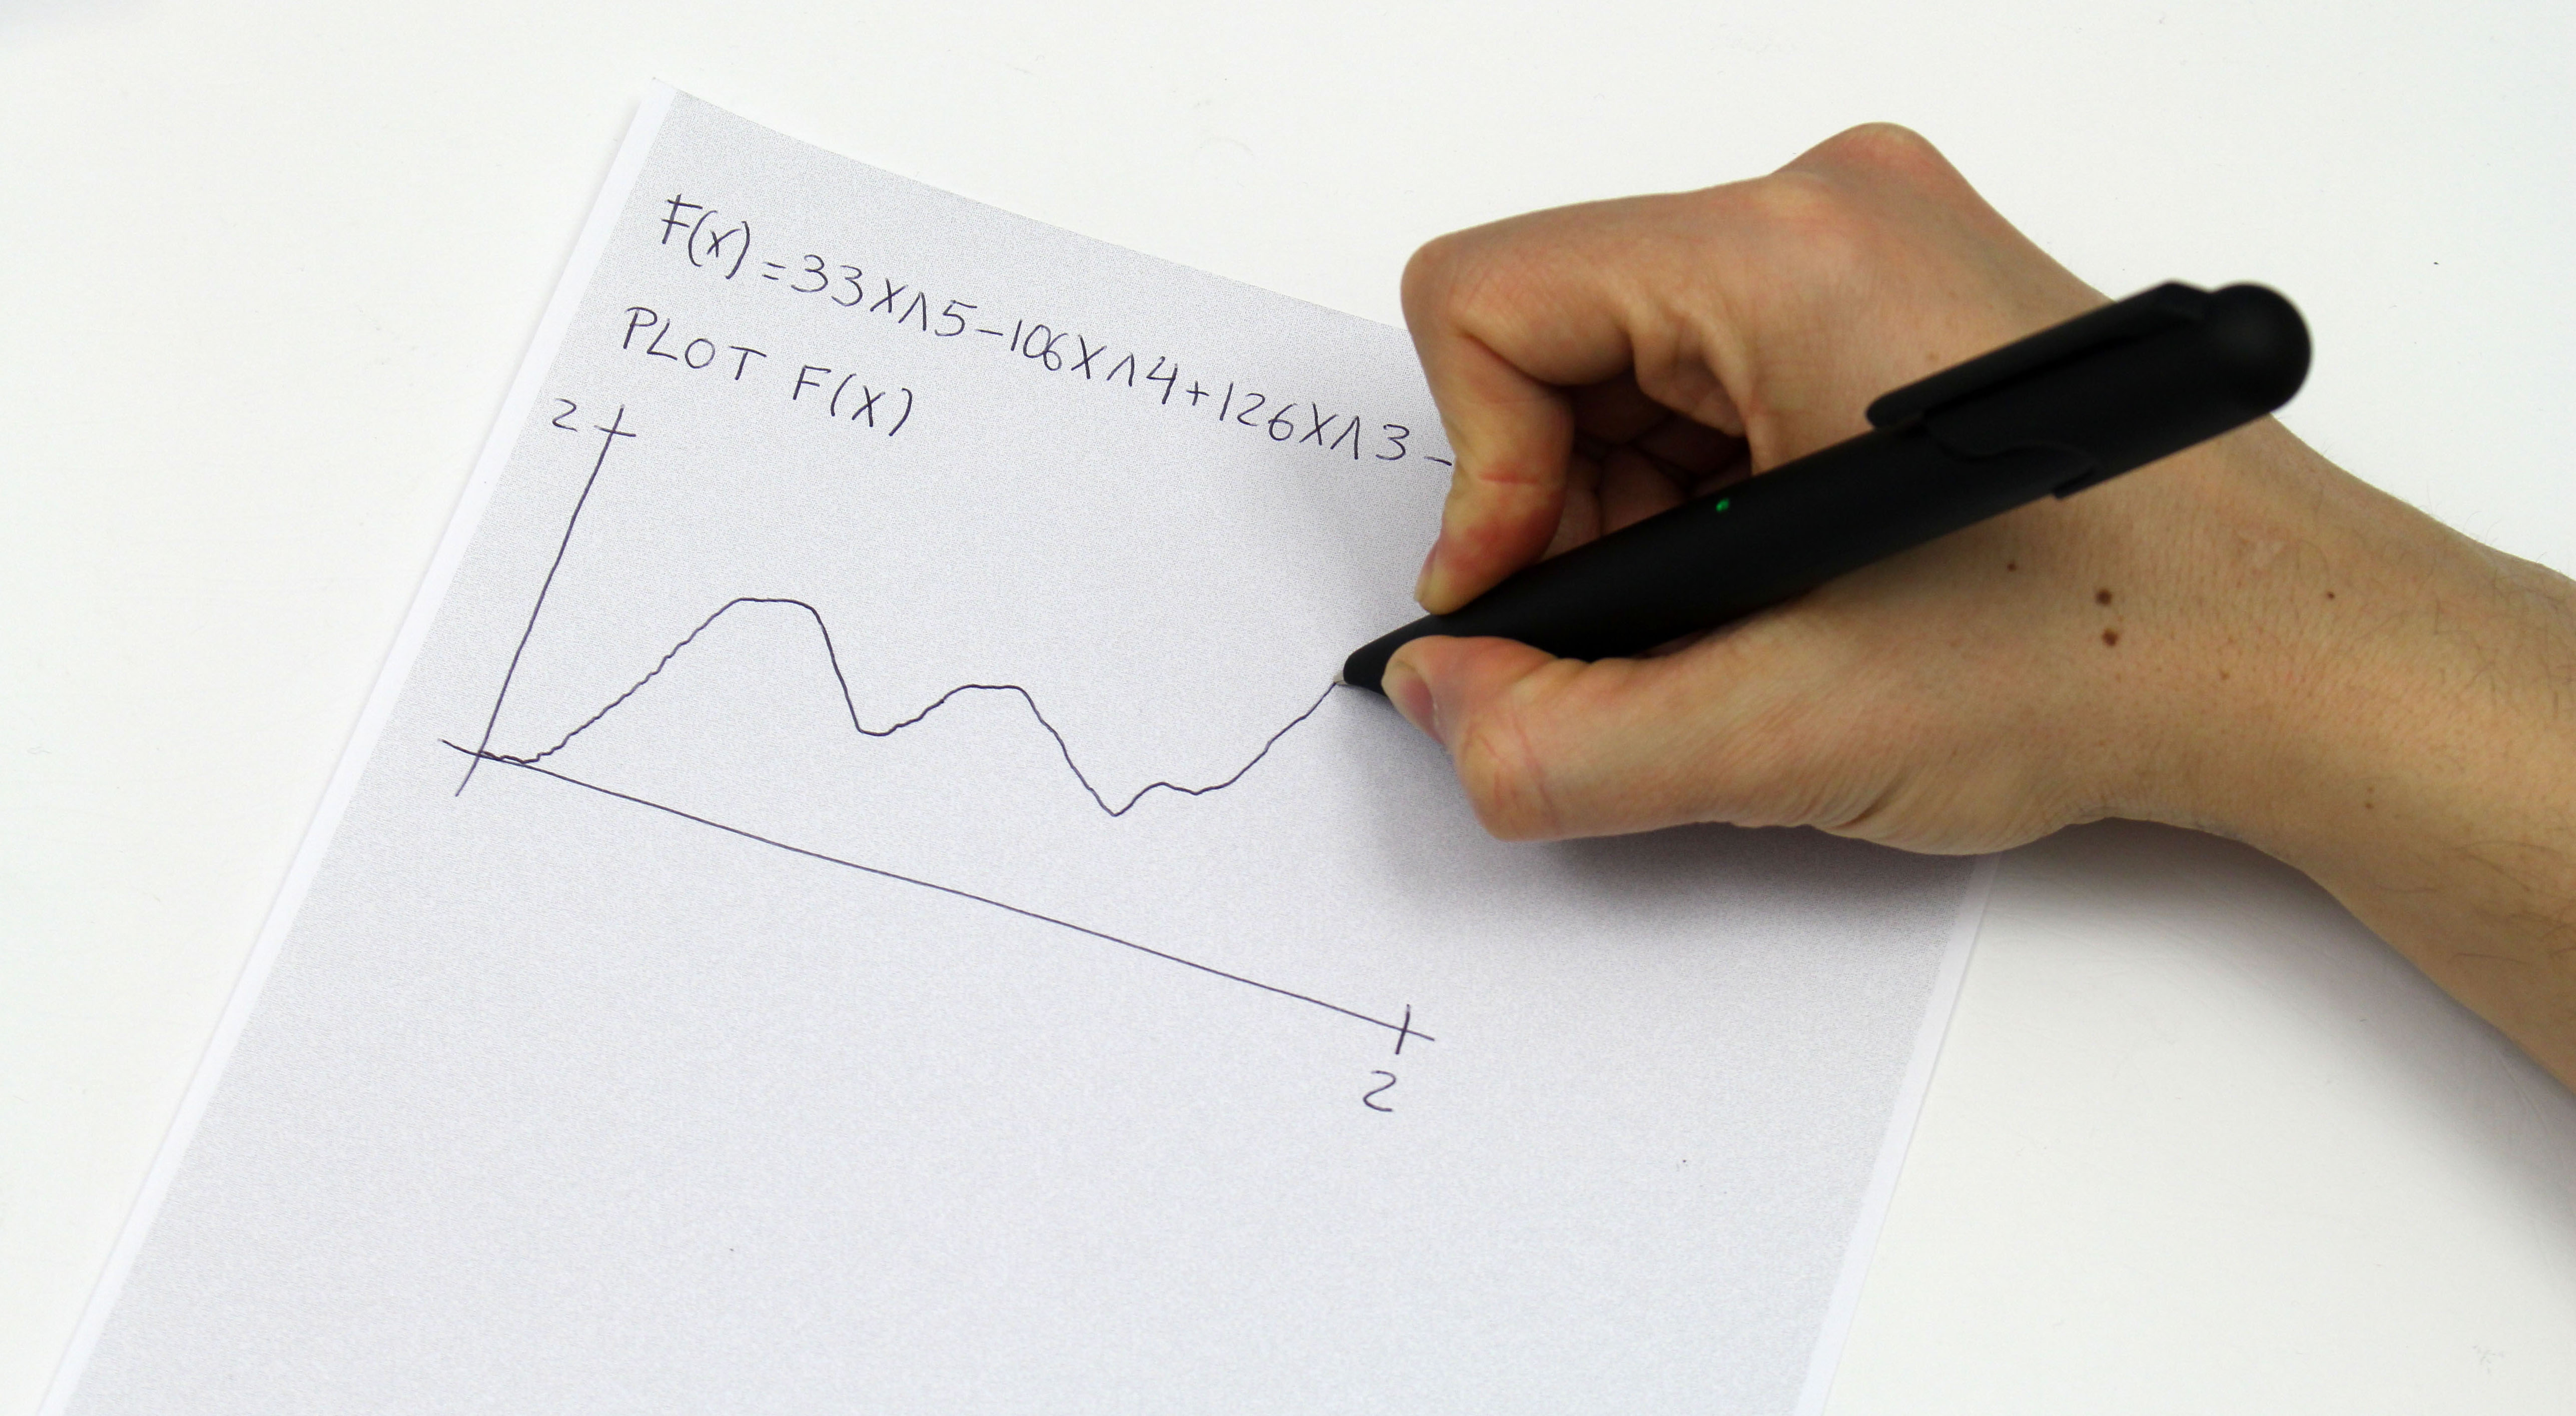 F(x)=33X∧5-106X∧4+126X∧3-
PLOT F(X)
2
2